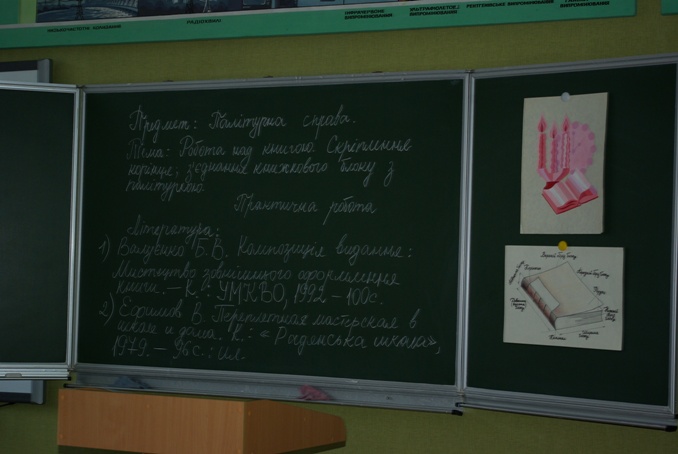 НИЗЬКОЧАСТОТНІ КОЛИВАННЯ
РАДІОХВИЛІ
ІНФРАЧЕРВОНЕ ВИПРОМІНЮВАННЯ
УЛЬТРАФІОЛЕТОВЕ ВИПРОМІНЮВАННЯ
РЕНТГЕНІВСЬКЕ ВИПРОМІНЮВАННЯ
ВИПРОМІНЮВАННЯ
Предмет: Палітурна справа.
Тема: Робота над книгою. Скріплення
корінця, з'єднання книжкового блоку з
палітуркою.
Практична робота
Література:
1) Валуенко Б.В. Композиція видання:
Мистецтво зовнішнього оформлення
книги. – К.: УМКВО, 1992 – 100с.
2) Ефимов В. Переплетная мастерская в
школе и дома. К.: «Радянська школа»,
1979. – 96с.: ил.